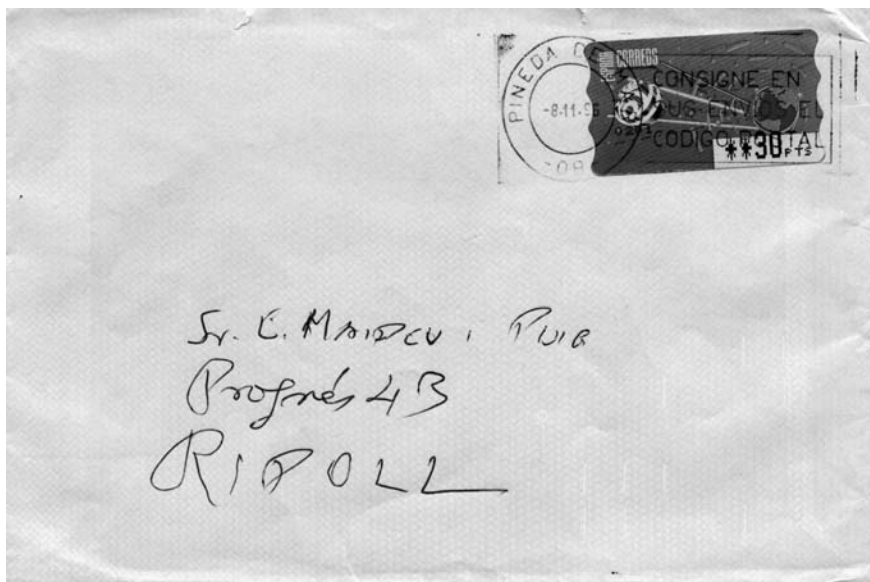 PINEDA DE
-8.11.96
08
ESPAÑA CORREOS
CONSIGNE EN
SUS ENVIOS EL
CODIGO POSTAL
0203
**30 PTS
Sr. E. MAIDEU i PUIG
Progrés 4B
RIPOLL